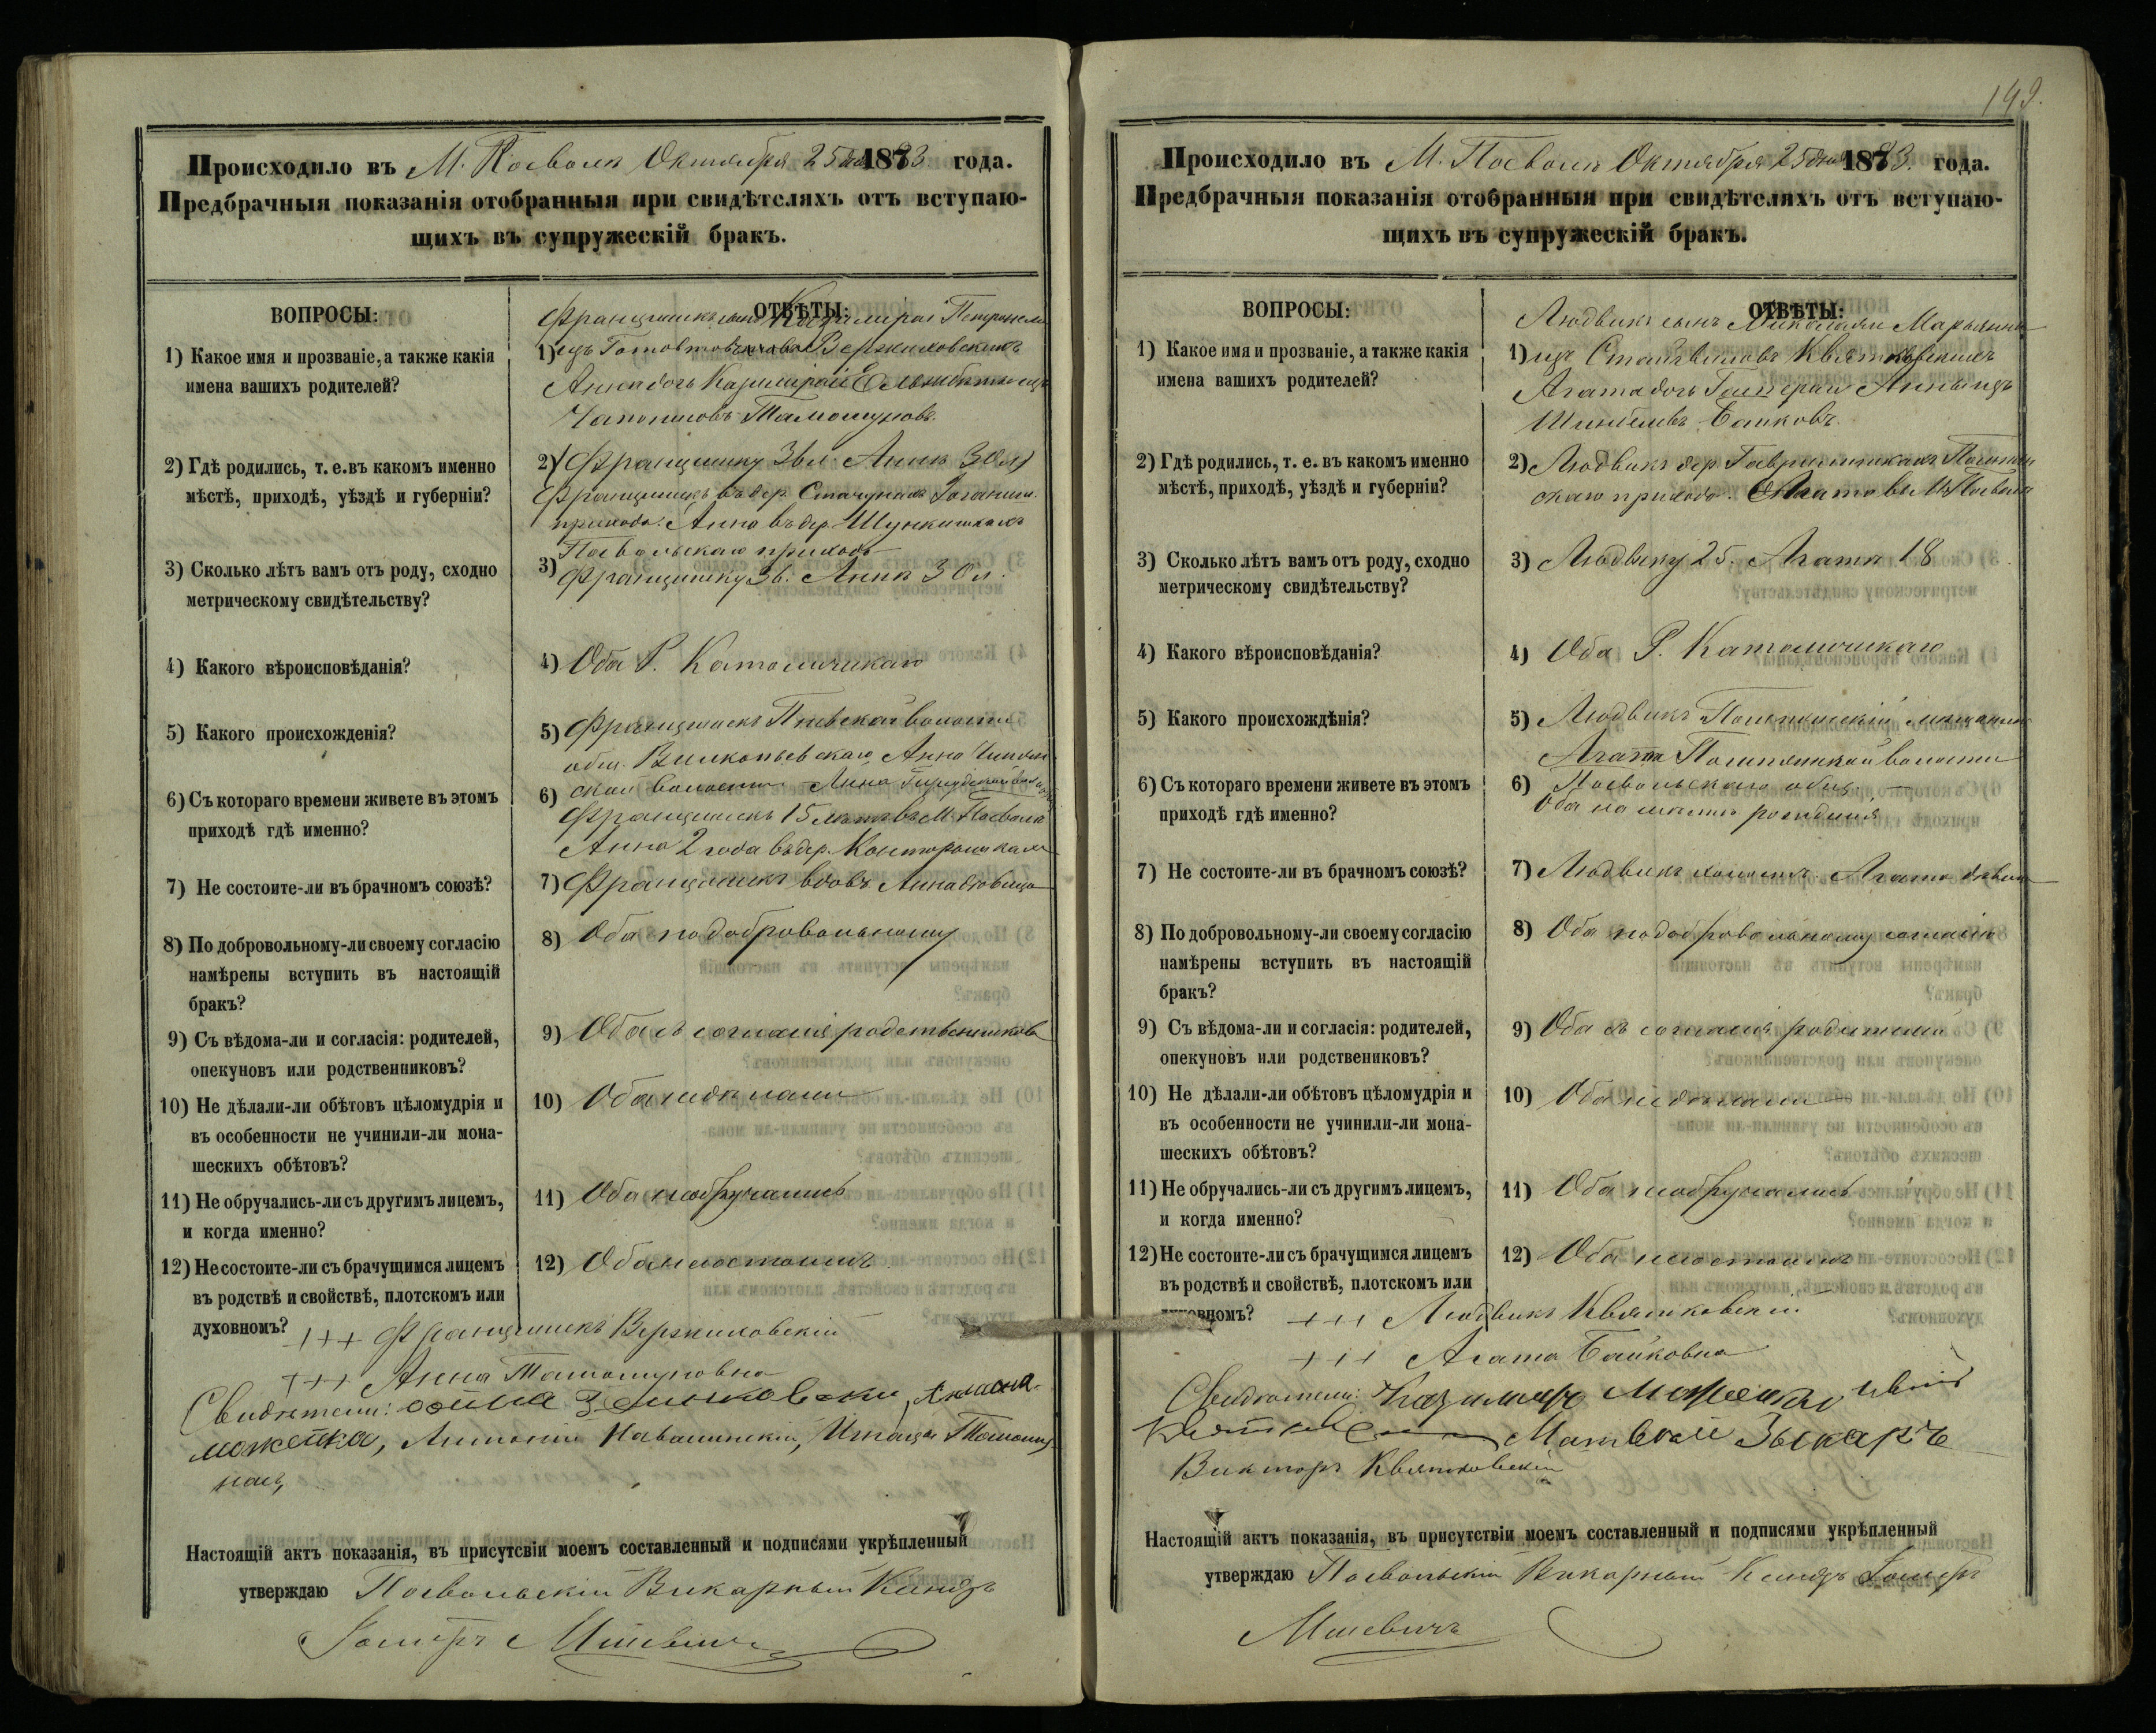 Происходило въ М. Посволѣ Октября 25 дня 1883 года.
Предбрачныя показанія отобранныя при свидѣтеляхъ отъ вступаю-
щихъ въ супружескій бракъ.
ВОПРОСЫ:
ОТВѢТЫ:
1) Какое имя и прозваніе, а также какія
имена вашихъ родителей?
Францишекъ сынъ Казимира и Петронели
1) изъ Вержиковскихъ
Анна дочь Казимира и Ельжбеты изъ
Тамошуновъ.
2) Гдѣ родились, т. е. въ какомъ именно
мѣстѣ, приходѣ, уѣздѣ и губерніи?
2) Францишку 36 л. Аннѣ 30 л)
Францишекъ въ дер.
прихода. Анна въ дер.
Посвольскаго прихода
3) Сколько лѣтъ вамъ отъ роду, сходно
метрическому свидѣтельству?
3) Францишку 36. Аннѣ 30 л.
4) Какого вѣроисповѣданія?
4) Оба Р. Католичскаго
5) Какого происхожденія?
5) Францишекъ волости
общ. Анна
ской волости — Анна
6) Съ котораго времени живете въ этомъ
приходѣ гдѣ именно?
6) Францишекъ 15 лѣтъ въ М. Посволѣ
Анна 2 года въ дер.
7) Не состоите-ли въ брачномъ союзѣ?
7) Францишекъ вдовъ Анна вдовица
8) По добровольному-ли своему согласію
намѣрены вступить въ настоящій
бракъ?
8) Оба по добровольному
9) Съ вѣдома-ли и согласія: родителей,
опекуновъ или родственниковъ?
9) Оба съ согласія родственниковъ
10) Не дѣлали-ли обѣтовъ цѣломудрія и
въ особенности не учинили-ли мона-
шескихъ обѣтовъ?
10) Оба не дѣлали
11) Не обручались-ли съ другимъ лицемъ,
и когда именно?
11) Оба не обручались
12) Не состоите-ли съ брачущимся лицемъ
въ родствѣ и свойствѣ, плотскомъ или
духовномъ?
12) Оба не состоимъ
+++ Францишекъ Вержиковскій
+++ Анна Тамошуновна
Свидѣтели:
можейка, Антоній Игнацы
Настоящій актъ показанія, въ присутсвіи моемъ составленный и подписями укрѣпленный
утверждаю Посвольскій Викарный Ксендзъ
149.
Происходило въ М. Посволѣ Октября 25 дня 1883. года.
Предбрачныя показанія отобранныя при свидѣтеляхъ отъ вступаю-
щихъ въ супружескій бракъ.
ВОПРОСЫ:
ОТВѢТЫ:
1) Какое имя и прозваніе, а также какія
имена вашихъ родителей?
Людвикъ сынъ Николая и Марьянны
1) изъ Квятковскихъ
Агата дочь Гаспера и Анны изъ
Байковъ.
2) Гдѣ родились, т. е. въ какомъ именно
мѣстѣ, приходѣ, уѣздѣ и губерніи?
2) Людвикъ дер.
скаго прихода. Агата въ М. Посволѣ
3) Сколько лѣтъ вамъ отъ роду, сходно
метрическому свидѣтельству?
3) Людвику 25. Агатѣ 18
4) Какого вѣроисповѣданія?
4) Оба Р. Католичскаго
5) Какого происхожденія?
5) Людвикъ мѣщанинъ
Агата волости
Посвольскаго общ. —
6) Съ котораго времени живете въ этомъ
приходѣ гдѣ именно?
6) Оба на мѣстѣ рожденія
7) Не состоите-ли въ брачномъ союзѣ?
7) Людвикъ холостъ. Агата дѣвица
8) По добровольному-ли своему согласію
намѣрены вступить въ настоящій
бракъ?
8) Оба по добровольному согласію
9) Съ вѣдома-ли и согласія: родителей,
опекуновъ или родствениковъ?
9) Оба съ согласія родителей
10) Не дѣлали-ли обѣтовъ цѣломудрія и
въ особенности не учинили-ли мона-
шескихъ обѣтовъ?
10) Оба не дѣлали —
11) Не обручались-ли съ другимъ лицемъ,
и когда именно?
11) Оба не обручались
12) Не состоите-ли съ брачущимся лицемъ
въ родствѣ и свойствѣ, плотскомъ или
духовномъ?
12) Оба не состоимъ
+++ Людвикъ Квятковскій
+++ Агата Байковна
Свидѣтели: Казимиръ
Матвѣй
Викторъ Квятковскій
Настоящій актъ показанія, въ присутствіи моемъ составленный и подписями укрѣпленный
утверждаю Посвольскій Викарный Ксендзъ